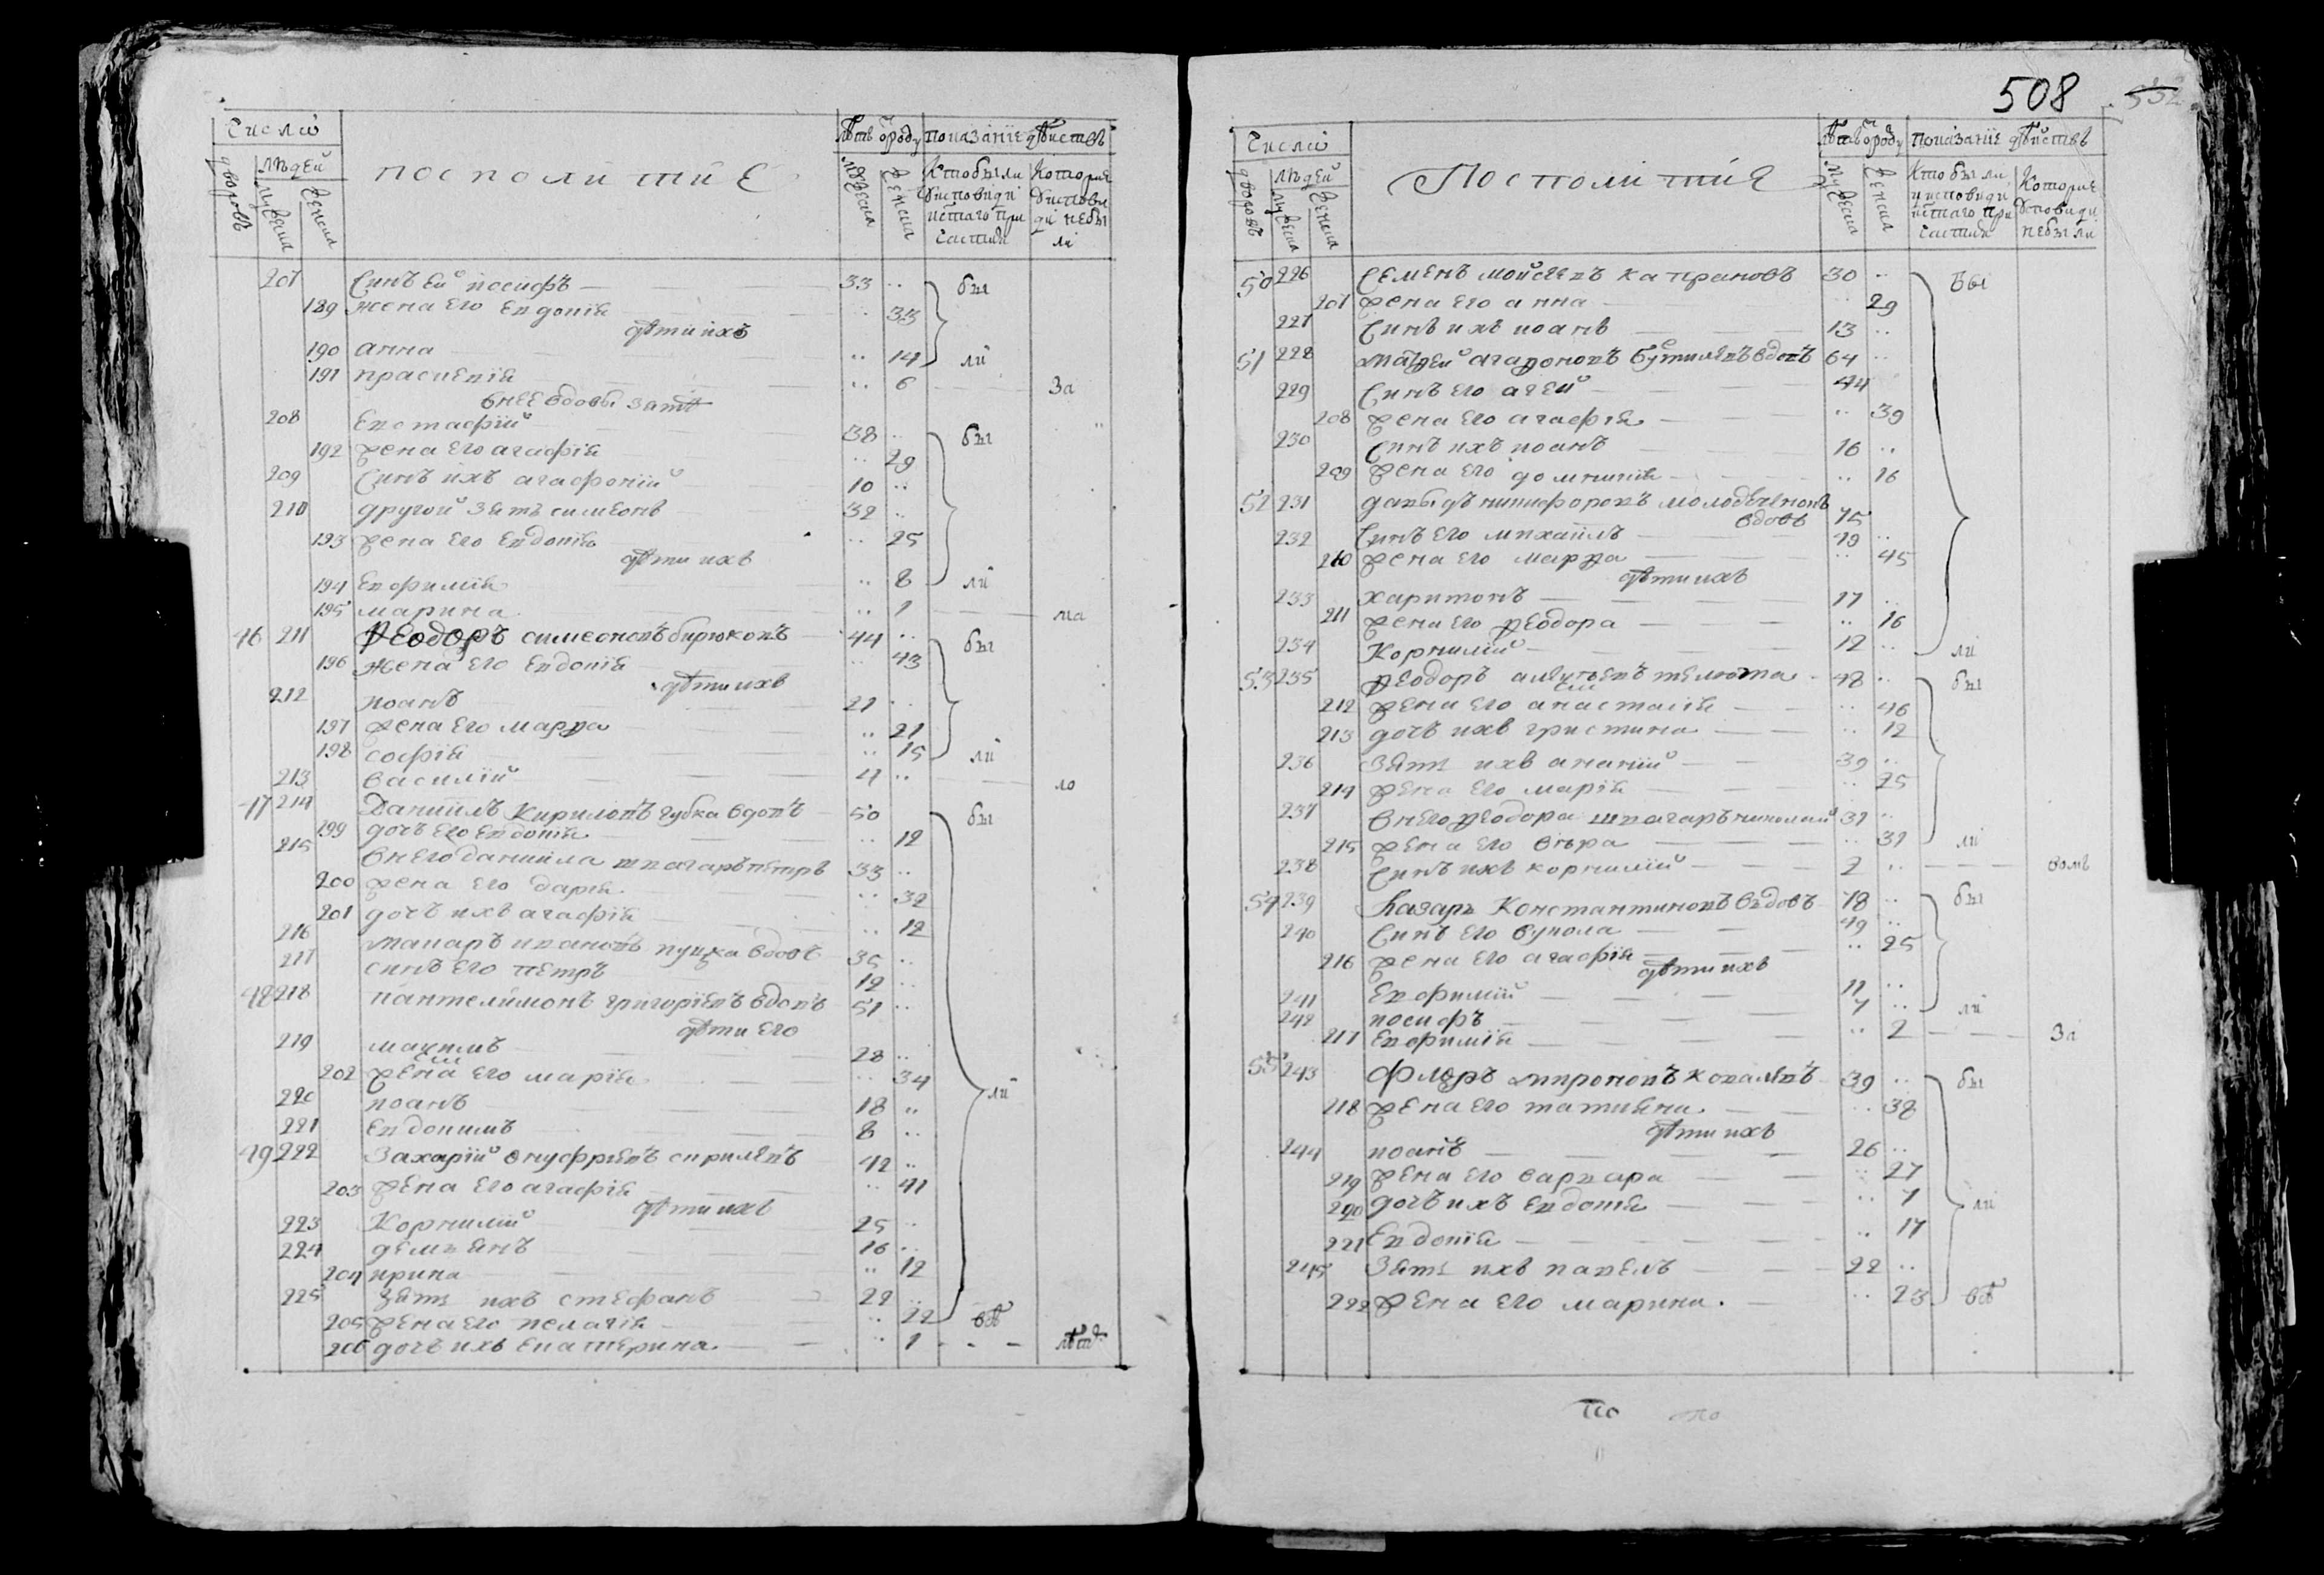 508
Число
посполитие
лѣтъ ѿ роду
показаніе дѣйствъ
дворовъ
людей
мужеска
женска
мужеска
женска
Кто были у исповиди и с:таго причастия
Которие у исповиди не бы ли
207 Синъ ей иосифъ 33 .. бы
189 жена его евдокія .. 33
дѣти ихъ
190 анна .. 14 ли
191 праскевія .. 6 За
в нее вдовы зять
208 Евстафій 38 .. бы
192 жена его агафія .. 29
209 Синъ ихъ агафоній 10 ..
210 другой зять симеонъ 32 ..
193 жена его Евдокія .. 25
дѣти ихъ
194 Евфимія .. 8 ли
195 марина .. 1 ма
46 211 Феодоръ симеоновъ бирюковъ 44 .. бы
196 жена его Евдокія .. 43
дѣти ихъ
212 иоанъ 21 ..
197 жена его марфа .. 21
198 софія .. 15 ли
213 василій 4 .. ло
47 214 Даниилъ Кириловъ губка вдовъ 50 бы
199 дочъ его евдокія .. 12
215 в него даниила швагаръ петръ 33 ..
200 жена его дарія .. 32
201 дочъ ихъ агафія .. 12
216 макаръ ивановъ пуцка вдовъ 35 ..
217 синъ его петръ 12 ..
48 218 пантелимонъ григоріевъ вдовъ 51 ..
дѣти его
219 максимъ 28 ..
202 жена его марія .. 34 ли
220 иоанъ 18 ..
221 Евдокимъ 8 ..
49 222 Захарій онуфріевъ скрилевъ 42 ..
203 жена его агафія .. 41
дѣти ихъ
223 Корнилій 25 ..
224 демянъ 16 ..
204 ирина .. 12
225 зять ихъ стефанъ 22 ..
205 жена его пелагія .. 22 въ
206 дочъ ихъ екатерина .. 1 лѣтъ
Число
Посполітия
лѣтъ ѿ роду
показаніе дѣйствъ
дворовъ
людей
мужеска
женска
мужеска
женска
Кто бы ли у исповиди и с:таго при частия
Которие у исповиди небы ли
50 226 Семенъ мойсеевъ катрановъ 30 .. Бы
207 жена его анна .. 29
227 Синъ ихъ иоанъ 13 ..
51 228 матфей агафоновъ бутилевъ вдовъ 64 ..
229 Синъ его агей 44
208 жена его агафія .. 39
230 Синъ ихъ иоанъ 16 ..
209 жена его домникія .. 16
52 231 давыдъ никифоровъ молодченовъ вдовъ 75
232 Синъ его михаилъ 49 ..
210 жена его марфа .. 45
дѣти ихъ
233 харитонъ 17 ..
211 жена его феодора .. 16
234 Корнилій 12 .. ли
53 235 феодоръ алексеевъ телюта 48 .. бы
212 жена его анастасія .. 46
213 дочъ ихъ христина .. 12
236 Зять ихъ ананий 39 ..
214 жена его марія .. 25
237 в него феодора швагаръ николай 31 ..
215 жена его вѣра .. 31 ли
238 Синъ ихъ корнилій 2 .. вомъ
54 239 Лазаръ Константиновъ вдовъ 78 .. бы
240 Синъ его вукола 49 ..
216 жена его агафія .. 25
дѣти ихъ
241 Евфимій 11 ..
242 иосифъ 7 .. ли
217 Евфимія .. 2 За
55 243 Флоръ мироновъ ковалевъ 39 .. бы
218 жена его татияна .. 38
дѣти ихъ
244 иоанъ 26 ..
219 жена его варвара .. 27
220 дочъ ихъ Евдокія .. 7 ли
221 Евдокія .. 17
245 Зять ихъ павелъ 22 ..
222 жена его марина .. 23 въ
по